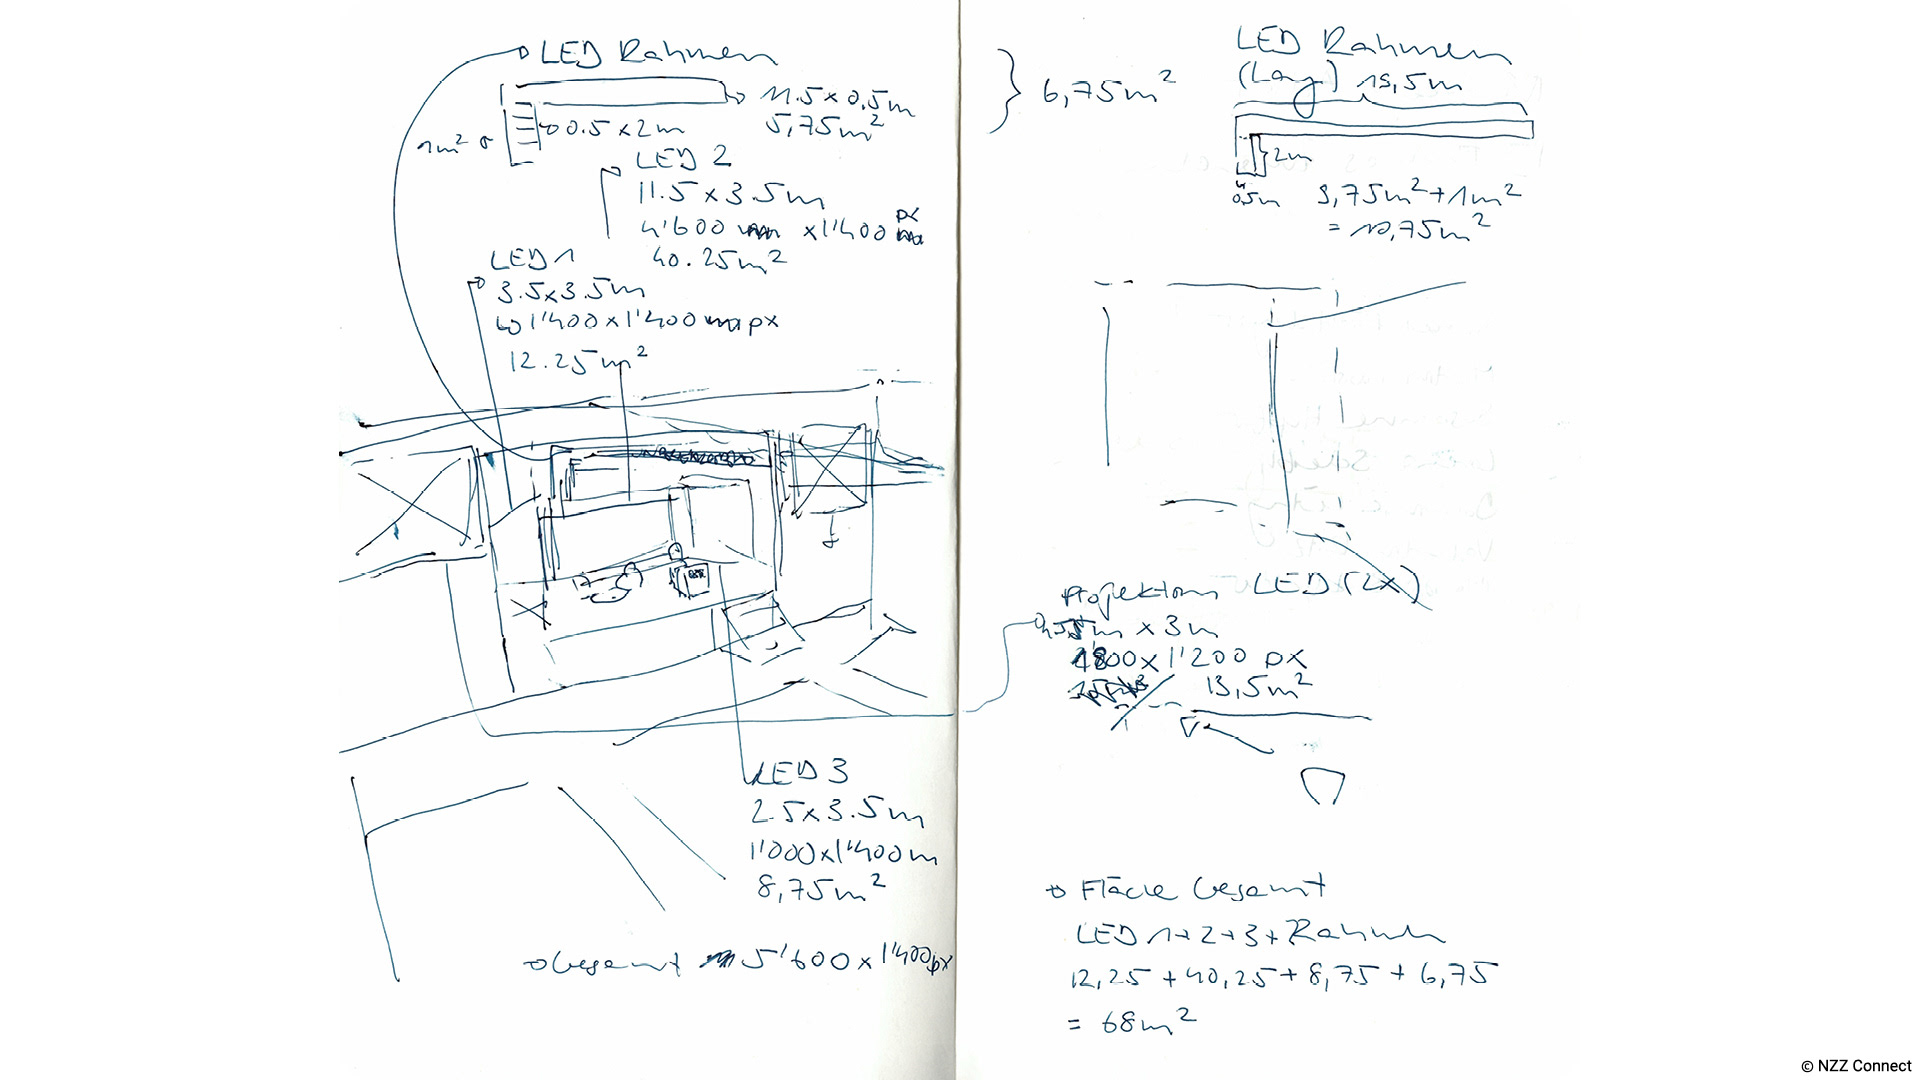 LED Rahmen
11.5 x 0.5m
5,75m²
0.5 x 2m
1m²
LED 2
11.5 x 3.5m
4'600 x 1'400 px
40.25m²
LED 1
3.5x3.5m
1'400 x 1'400 px
12.25m²
LED 3
2.5x3.5m
1'000x1'400m
8,75m²
Gesamt 5'600 x 1'400px
6,75m²
LED Rahmen
(Lang) 19,5m
2m
0,5m
9,75m² + 1m²
= 10,75m²
Projektion LED (2x)
x 3m
1800 x 1'200 px
13,5m²
Fläche Gesamt
LED 1+2+3+Rahmen
12,25 + 40,25 + 8,75 + 6,75
= 68m²
© NZZ Connect